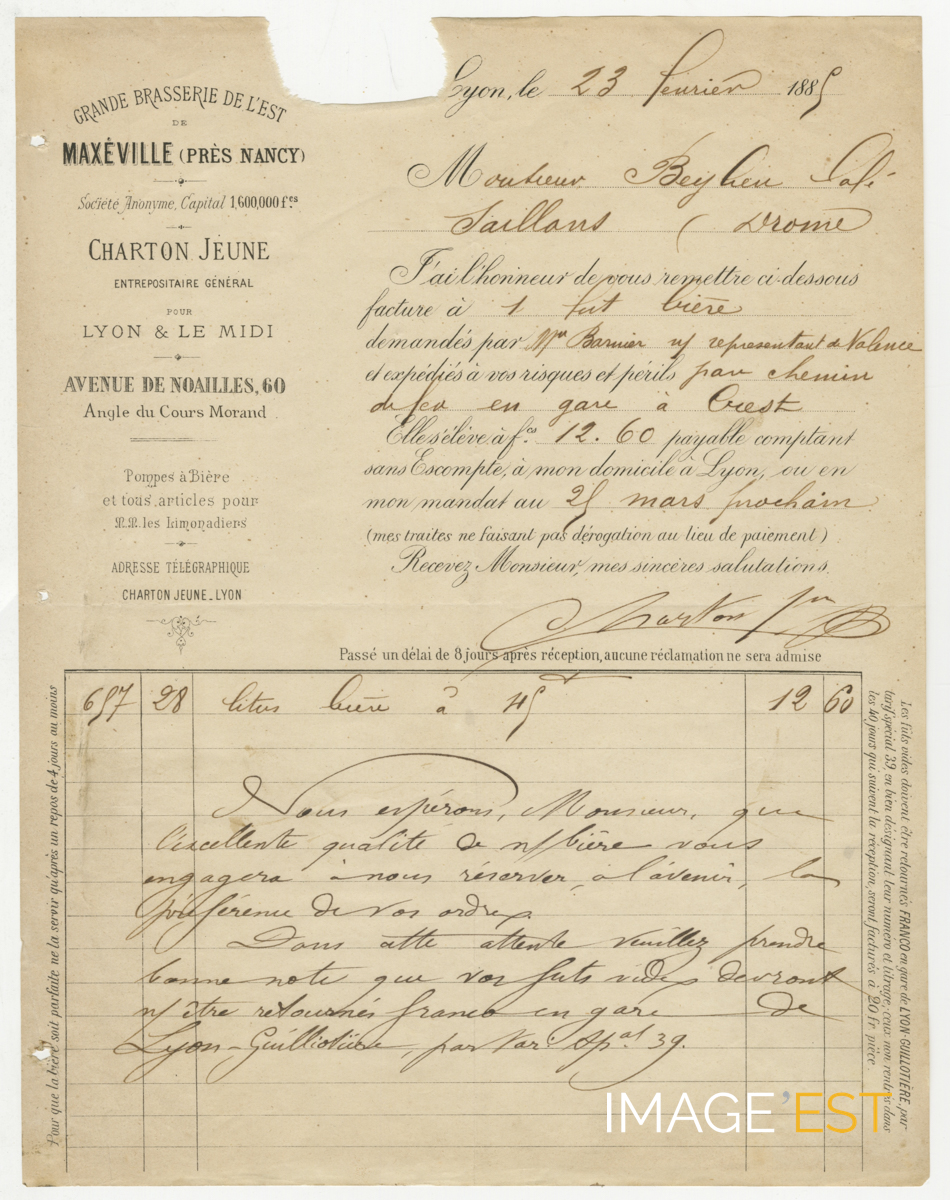 GRANDE BRASSERIE DE L'EST
DE
MAXÉVILLE (PRÈS NANCY)
Société Anonyme, Capital 1,600,000 f.cs
CHARTON JEUNE
ENTREPOSITAIRE GÉNÉRAL
POUR
LYON & LE MIDI
AVENUE DE NOAILLES, 60
Angle du Cours Morand
Pompes à Bière
et tous articles pour
M.M. les limonadiers
ADRESSE TÉLÉGRAPHIQUE
CHARTON JEUNE_LYON
Lyon, le 23 février 1885
Monsieur Beylieu Café
Saillans (Drome
J'ai l'honneur de vous remettre ci-dessous
facture à 1 fut bière
demandés par Mr Barnier n/ representant de Valence
et expédiés à vos risques et périls par chemin
de fer en gare à Crest
Elle s'élève à f.cs 12.60 payable comptant
sans Escompte, à mon domicile à Lyon, ou en
mon mandat au 25 mars prochain
(mes traites ne faisant pas dérogation au lieu de paiement)
Recevez Monsieur, mes sincères salutations.
Charton jne
Passé un délai de 8 jours après réception, aucune réclamation ne sera admise
657 28 litres bière à 45 12 60
Nous espérons, Monsieur, que
l'excellente qualité de n/bière vous
engagera à nous réserver, à l'avenir, la
préférence de vos ordres.
Dans cette attente veuillez prendre
bonne note que vos futs vides devront
n/ être retournés franco en gare de
Lyon-Guillotière, par tar. spal 39.
Pour que la bière soit parfaite ne la servir qu'après un repos de 4 jours au moins
Les fûts vides doivent être retournés FRANCO en gare de LYON-GUILLOTIÈRE, par
tarif spécial 39, en bien désignant leur numéro et titrage; ceux non rentrés dans
les 40 jours qui suivent la réception, seront facturés à 20 fr. pièce.
IMAGE'EST